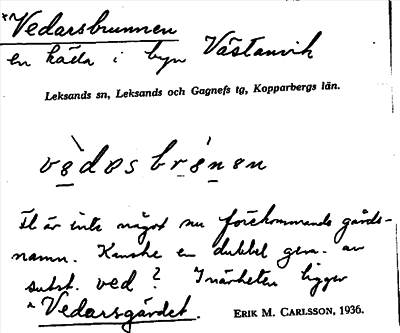 *Vedarsbrunnen
en käda i byn Västanvik
Leksands sn, Leksands och Gagnefs tg, Kopparbergs län.
vedəsbrenən
Fl är inte något nu förekommande gårds-
namn. Kanske en dubbel gen. av
subst. ved? I närheten ligger
*Vedarsgärdet.
ERIK M. CARLSSON, 1936.